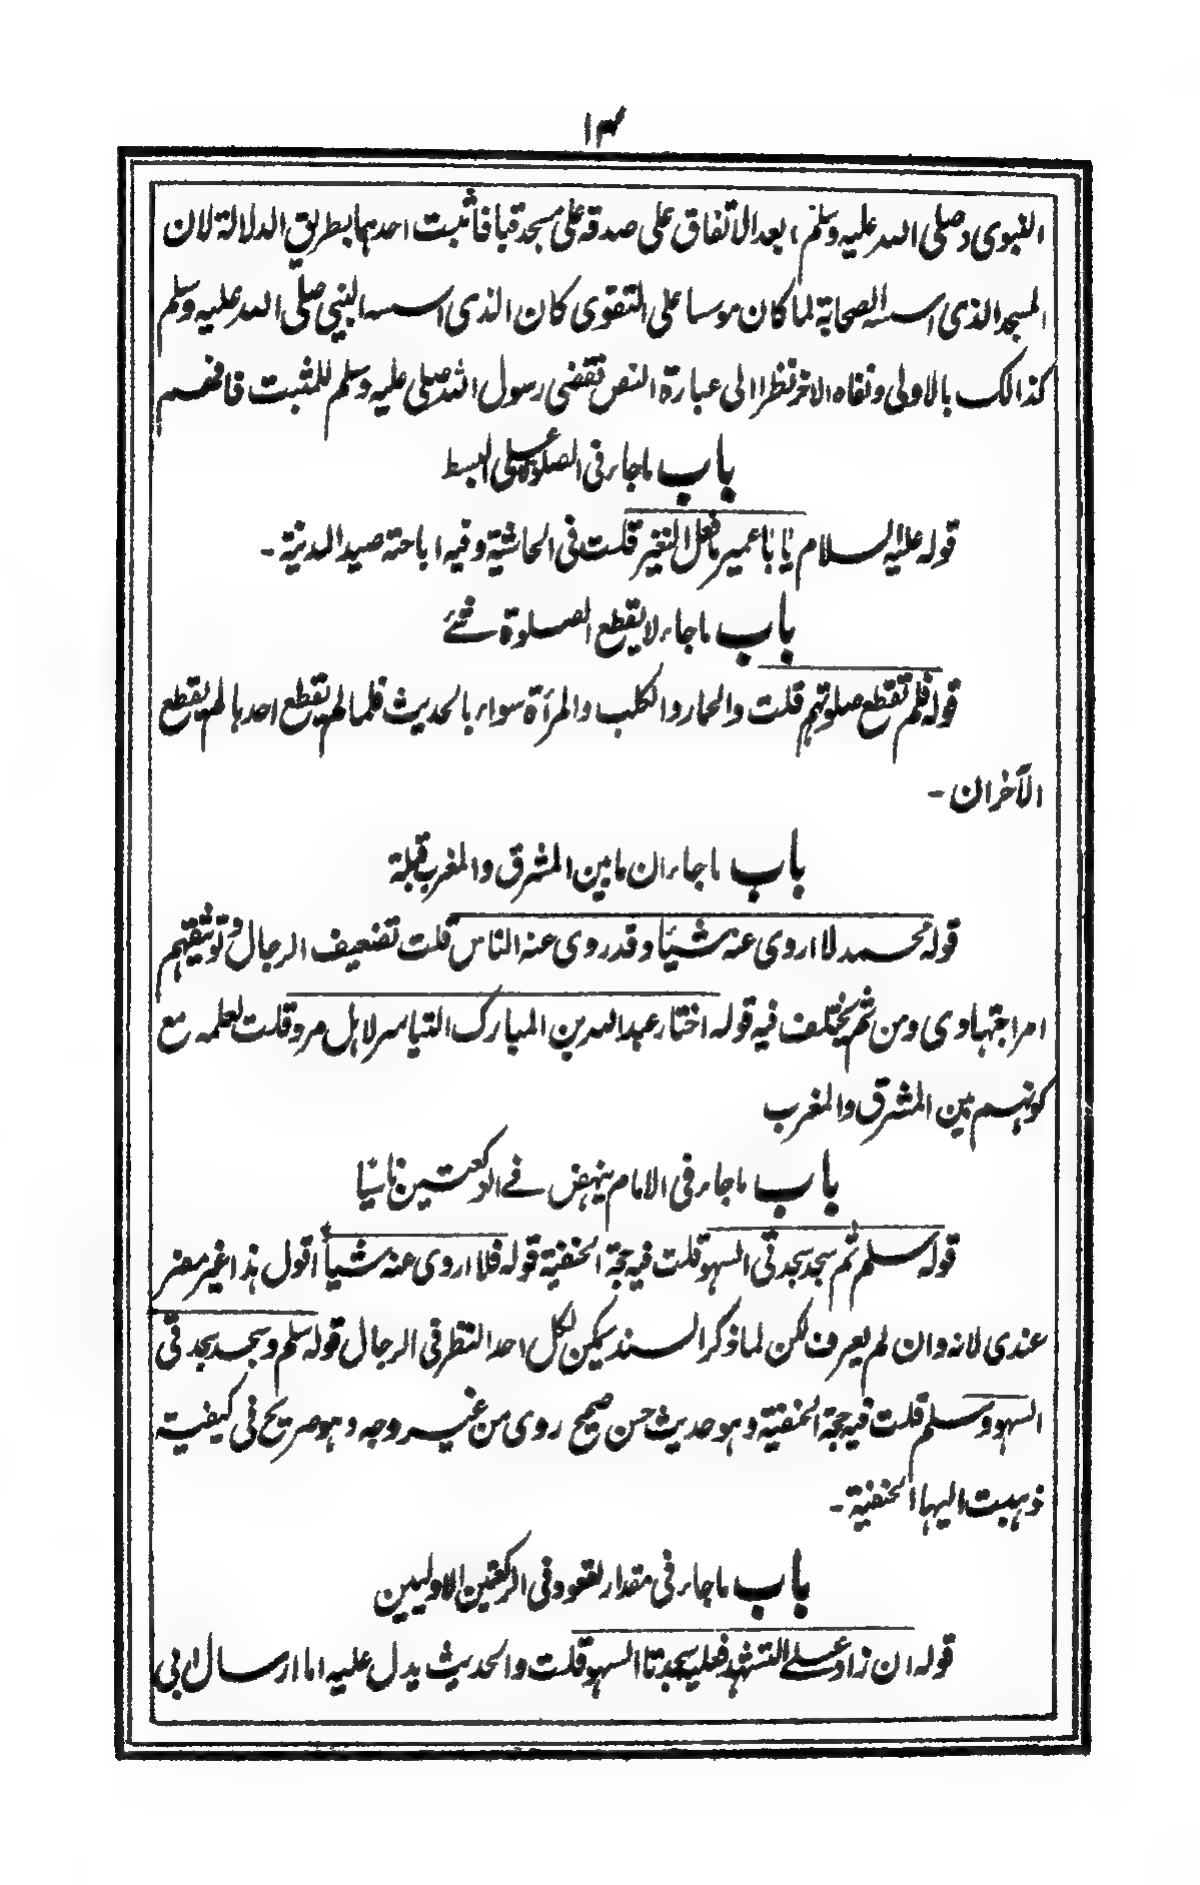 ١٣
النبوی (صلی اللہ علیہ وسلم) بعد الاتفاق علی صدقہ علی مسجد قبا فأثبت احدہما بطریق الدلالۃ لان
المسجد الذی اسسہ الصحابۃ لما کان موسسا علی التقوی کان الذی اسسہ النبی صلی اللہ علیہ وسلم
کذالک بالاولی ونفاہ الاخر نظرا الی عبارۃ النص فقضی رسول اللہ صلی علیہ وسلم للمثبت فافہم
باب ماجاء فی الصلوۃ علی البسط
قولہ علیہ السلام یا ابا عمیر ما فعل النغیر قلت فی الحاشیۃ وفیہ اباحۃ صید المدینۃ -
باب ماجاء لا یقطع الصلوۃ شئے
قولہ فلم تقطع صلوتہم قلت والحمار والکلب والمرأۃ سواء بالحدیث فلما لم یقطع احدہا لم یقطع
الآخران -
باب ماجاء ان ما بین المشرق والمغرب قبلۃ
قولہ محمد لا اروی عنہ شیئا وقد روی عنہ الناس قلت تضعیف الرجال وتوثیقہم
امر اجتہادی ومن ثم یختلف فیہ قولہ اختار عبداللہ بن المبارک التیاسر لاہل مرو قلت لعلہ مع
کونہم بین المشرق والمغرب
باب ماجاء فی الامام ینہض فے الرکعتین ناسیا
قولہ سلم ثم سجد سجدتی السہو قلت فیہ حجۃ الحنفیۃ قولہ فلا اروی عنہ شیأ اقول ہذا غیر مضر
عندی لانہ وان لم یعرف لکن لما ذکر السند یمکن لکل احد النظر فی الرجال قولہ سلم وسجد سجدتی
السہو وسلم قلت فیہ حجۃ الحنفیۃ وہو حدیث حسن صحیح روی من غیر وجہ وہو صریح فی کیفیتہ
ذہبت الیہا الحنفیۃ -
باب ماجاء فی مقدار القعود فی الرکعتین الاولیین
قولہ ان زاد علے التشہد فعلیہ سجدتا السہو قلت والحدیث یدل علیہ اما ارسال ابی